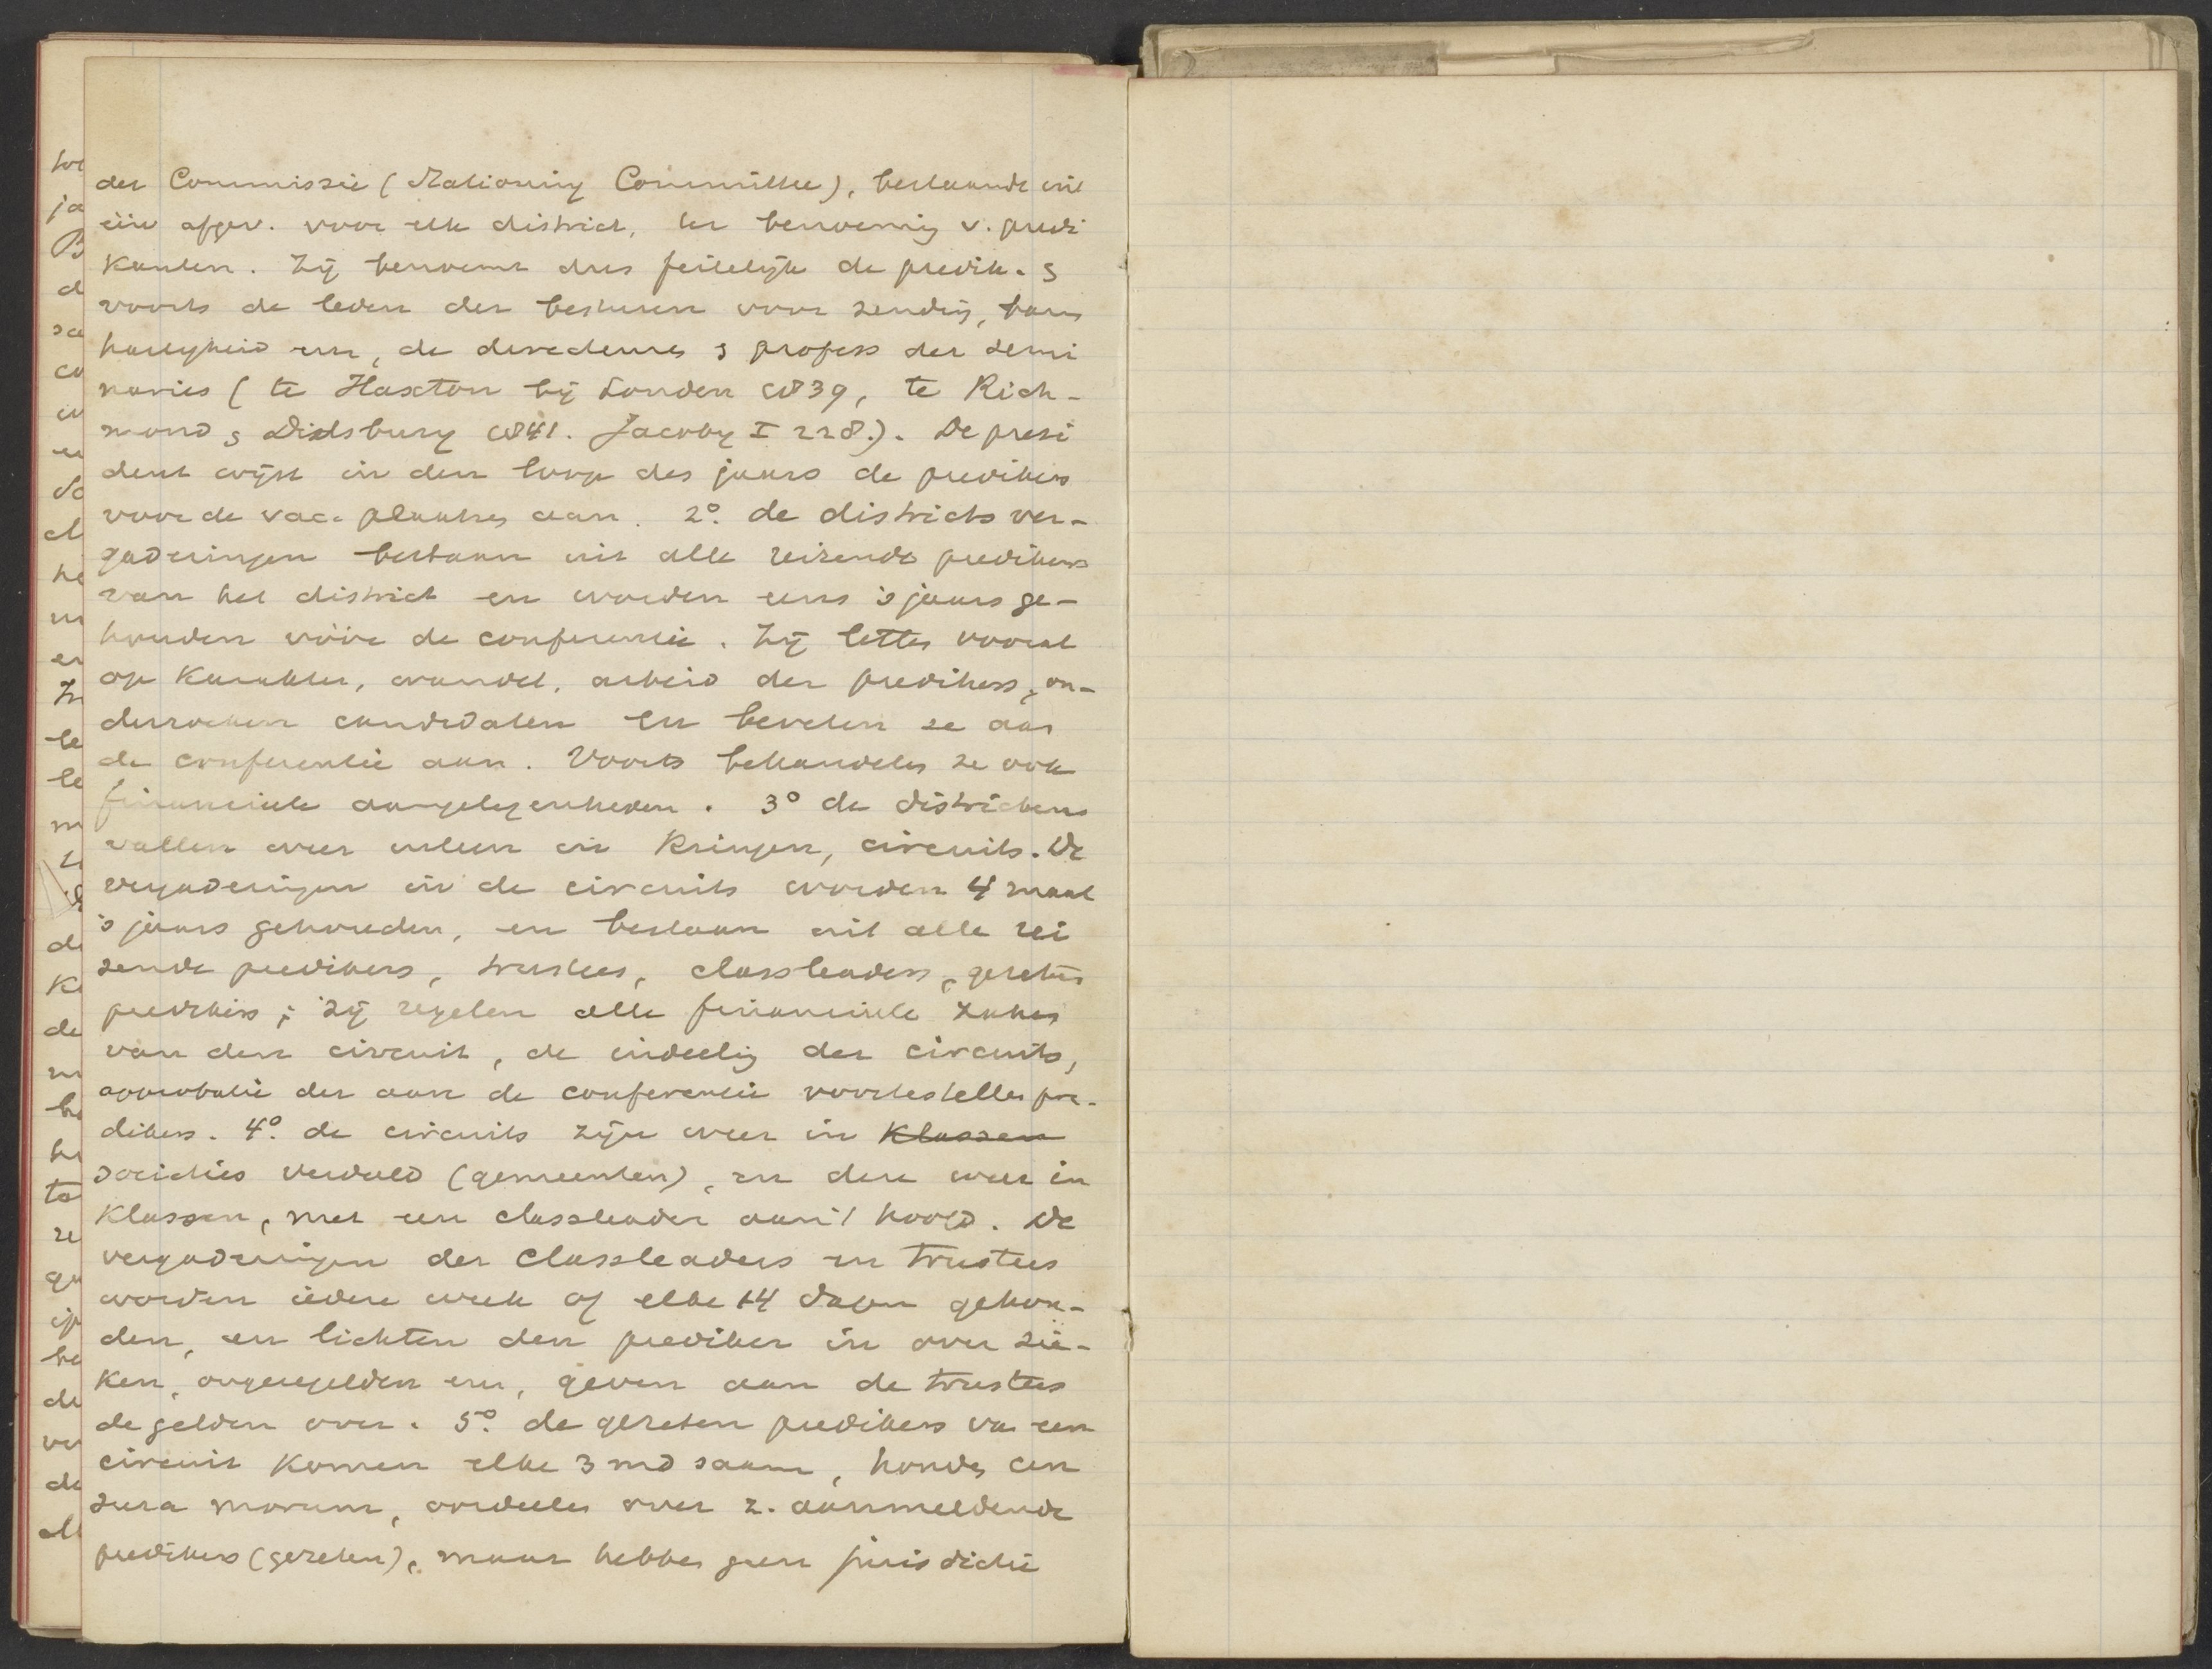 der Commissie (Stationing Committee), bestaande uit
één afgev. voor elk district, ter benoeming v. predi
kanten. Zij benoemt dus feitelijk de predik. &
voorts de leden der besturen voor zending, barm
hartigheid enz, de directeures & profess der semi
naries (te Hoxton bij Londen 1839, te Rich-
mond & Didsbury 1841. Jacoby I 228.). De presi
dent wijst in den loop des jaars de predikers
voor de vac. plaatsen aan. 2º. de districtsver-
gaderingen bestaan uit alle reizende predikers
van het district en worden eens 's jaars ge-
houden vóór de conferentie. Zij letten vooral
op karakter, wandel, arbeid der predikers, on-
derzoeken candidaten en bevelen ze aan
de conferentie aan. Voorts behandelen ze ook
financieele aangelegenheden. 3º de districten
vallen weer uiteen in Kringen, circuits. De
vergaderingen in de circuits worden 4 maal
's jaars gehouden, en bestaan uit alle rei
zende predikers, trustees, classleaders, gezeten
predikers; zij regelen alle financieele zaken
van den circuit, de indeeling der circuits,
approbatie der aan de conferentie voortestellen pre-
dikers. 4º. de circuits zijn weer in Klassen
societies verdeeld (gemeenten), en deze weer in
Klassen, met een classleader aan 't hoofd. De
vergaderingen der Classleaders en trustees
worden iedere week of elke 14 dagen gehou-
den, en lichten den prediker in over zie-
ken, ongeregelden enz, geven aan de trustees
de gelden over. 5º. de gezeten predikers van een
circuit komen elke 3 md saam, houden cen
sura morum, oordeelen over z. aanmeldende
predikers (gezeten), maar hebben geen jurisdictie